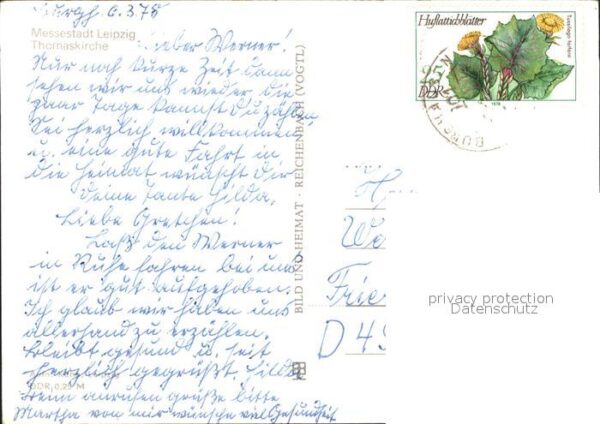 Burgh. 6.3.78
Messestadt Leipzig
Thomaskirche
Lieber Werner!
Nur noch kurze Zeit dann
sehen wir uns wieder die
paar Tage kannst Du zählen
Sei herzlich willkommen
u. eine gute Fahrt in
die Heimat wünscht Dir
Deine Tante Hilda.
Liebe Gretchen!
Laß den Werner
in Ruhe fahren bei uns
ist er gut aufgehoben.
Ich glaub wir haben uns
allerhand zu erzählen.
Bleibt gesund u. seit
herzlich gegrüßt. Hilda
DDR 0,25 M
Wenn anrufen grüße bitte
Martha von mir wünsche viel Gesundheit
BILD UND HEIMAT · REICHENBACH (VOGTL)
Huflattichblätter
Tussilago farfara
25
DDR
1978
D 45
privacy protection
Datenschutz